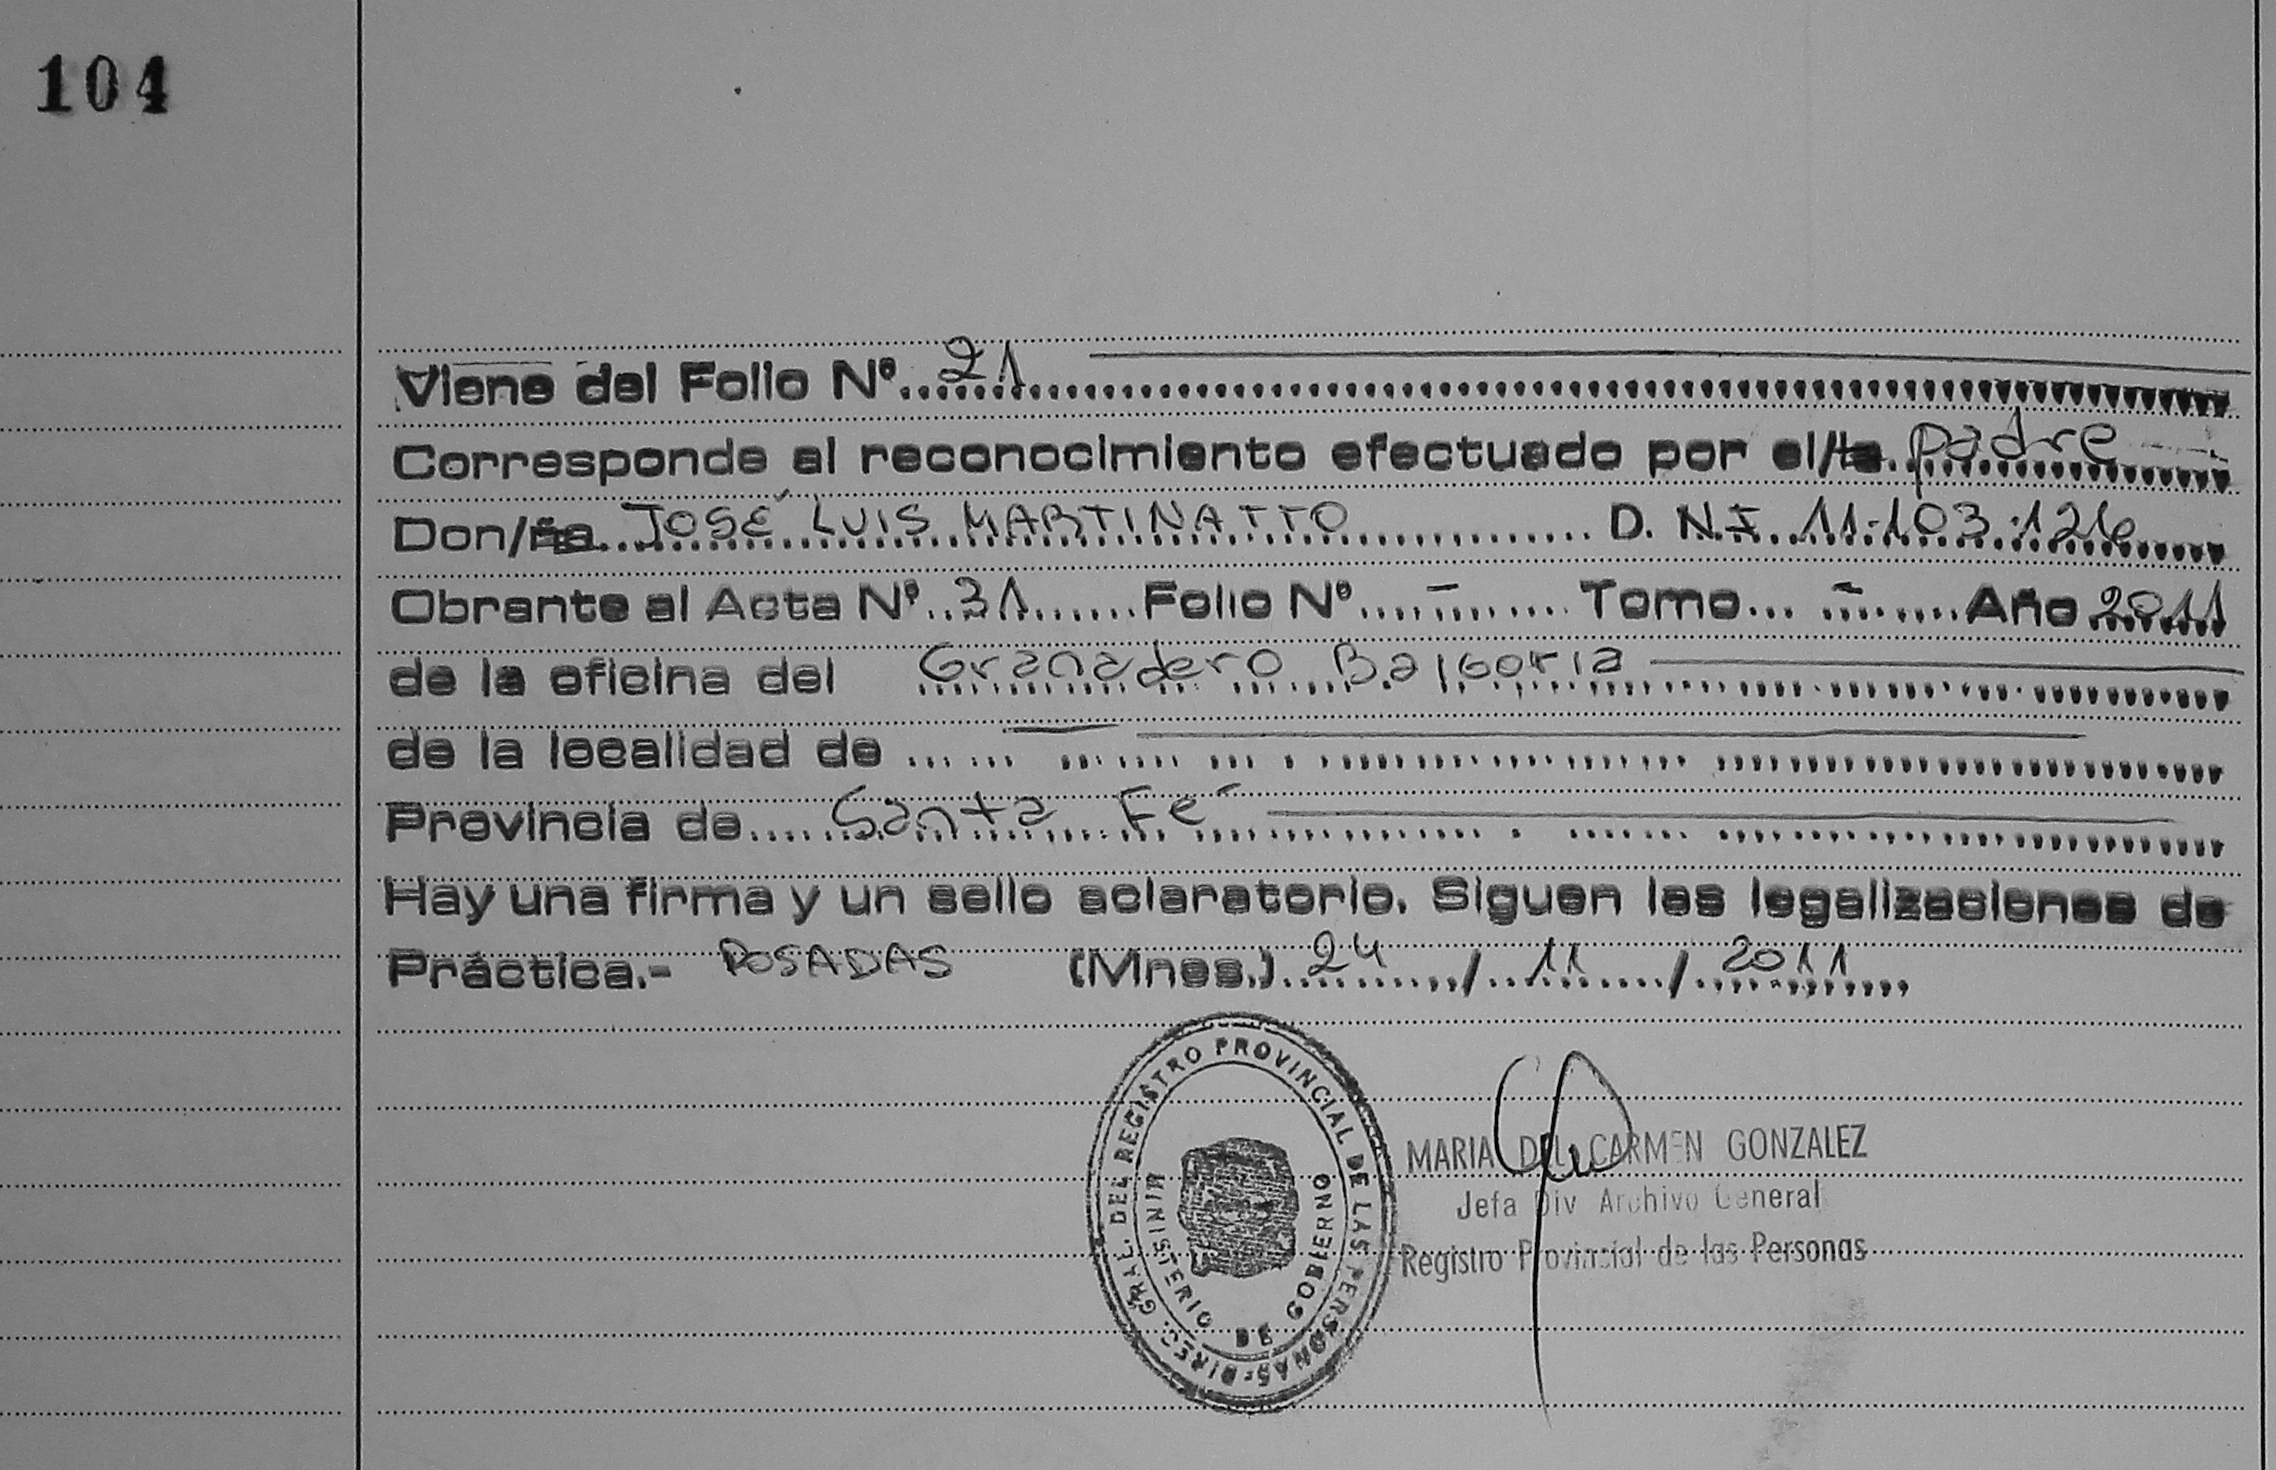 104
Viene del Folio Nº 21
Corresponde al reconocimiento efectuado por el/la padre
Don/ña JOSÉ LUIS MARTINATTO D. N.I. 11.103.126
Obrante al Acta Nº 31 Folio Nº - Tomo - Año 2011
de la oficina del Granadero Baigorria
de la localidad de
Provincia de Santa Fé
Hay una firma y un sello aclaratorio. Siguen las legalizaciones de
Práctica.- POSADAS (Mnes.) 24/11/2011
DIREC. GRAL. DEL REGISTRO PROVINCIAL DE LAS PERSONAS
MINISTERIO DE GOBIERNO
MARIA DEL CARMEN GONZALEZ
Jefa Div Archivo General
Registro Provincial de las Personas